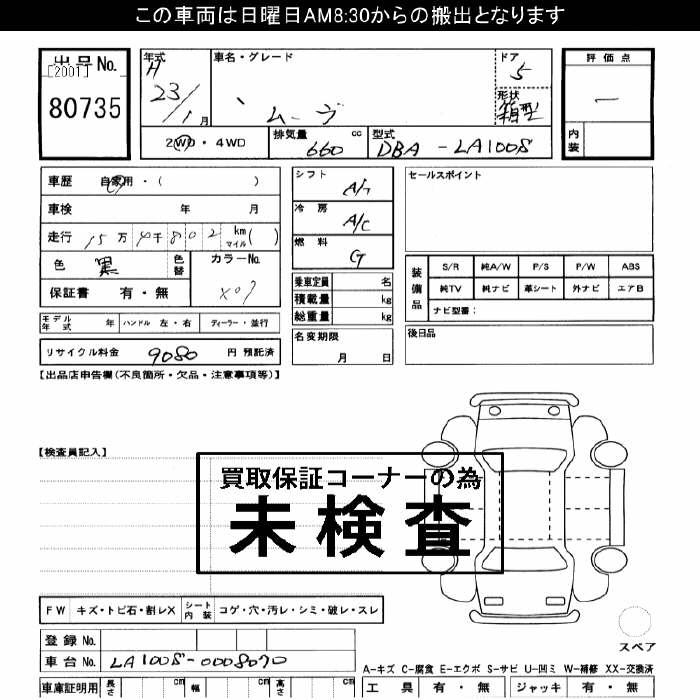 この車両は日曜日AM8:30からの搬出となります
出品No.
[2001]
80735
年式 H 23/1月
車名・グレード ムーヴ
ドア 5
形状 箱型
2WD・4WD
排気量 660 cc
型式 DBA-LA100S
評価点
内装
車歴 自家用・( )
車検 年 月
走行 15万4千802 km マイル( )
色 黒 色替
カラーNo. X07
保証書 有・無
シフト A/T
冷房 A/C
燃料 G
乗車定員 名
積載量 kg
総重量 kg
名変期限 月 日
セールスポイント
装備品
S/R 純A/W P/S P/W ABS
純TV 純ナビ 革シート 外ナビ エアB
ナビ型番:
後日品
モデル年式 年 ハンドル 左・右 ディーラー・並行
リサイクル料金 9080 円 預託済
【出品店申告欄(不良箇所・欠品・注意事項等)】
【検査員記入】
買取保証コーナーの為
未検査
FW キズ・トビ石・割レX シート内装 コゲ・穴・汚レ・シミ・破レ・スレ
スペア
登録No.
車台No. LA100S-0008070
A-キズ C-腐食 E-エクボ S-サビ U-凹ミ W-補修 XX-交換済
車庫証明用 長さ cm 幅 cm 高さ cm
工具 有・無 ジャッキ 有・無